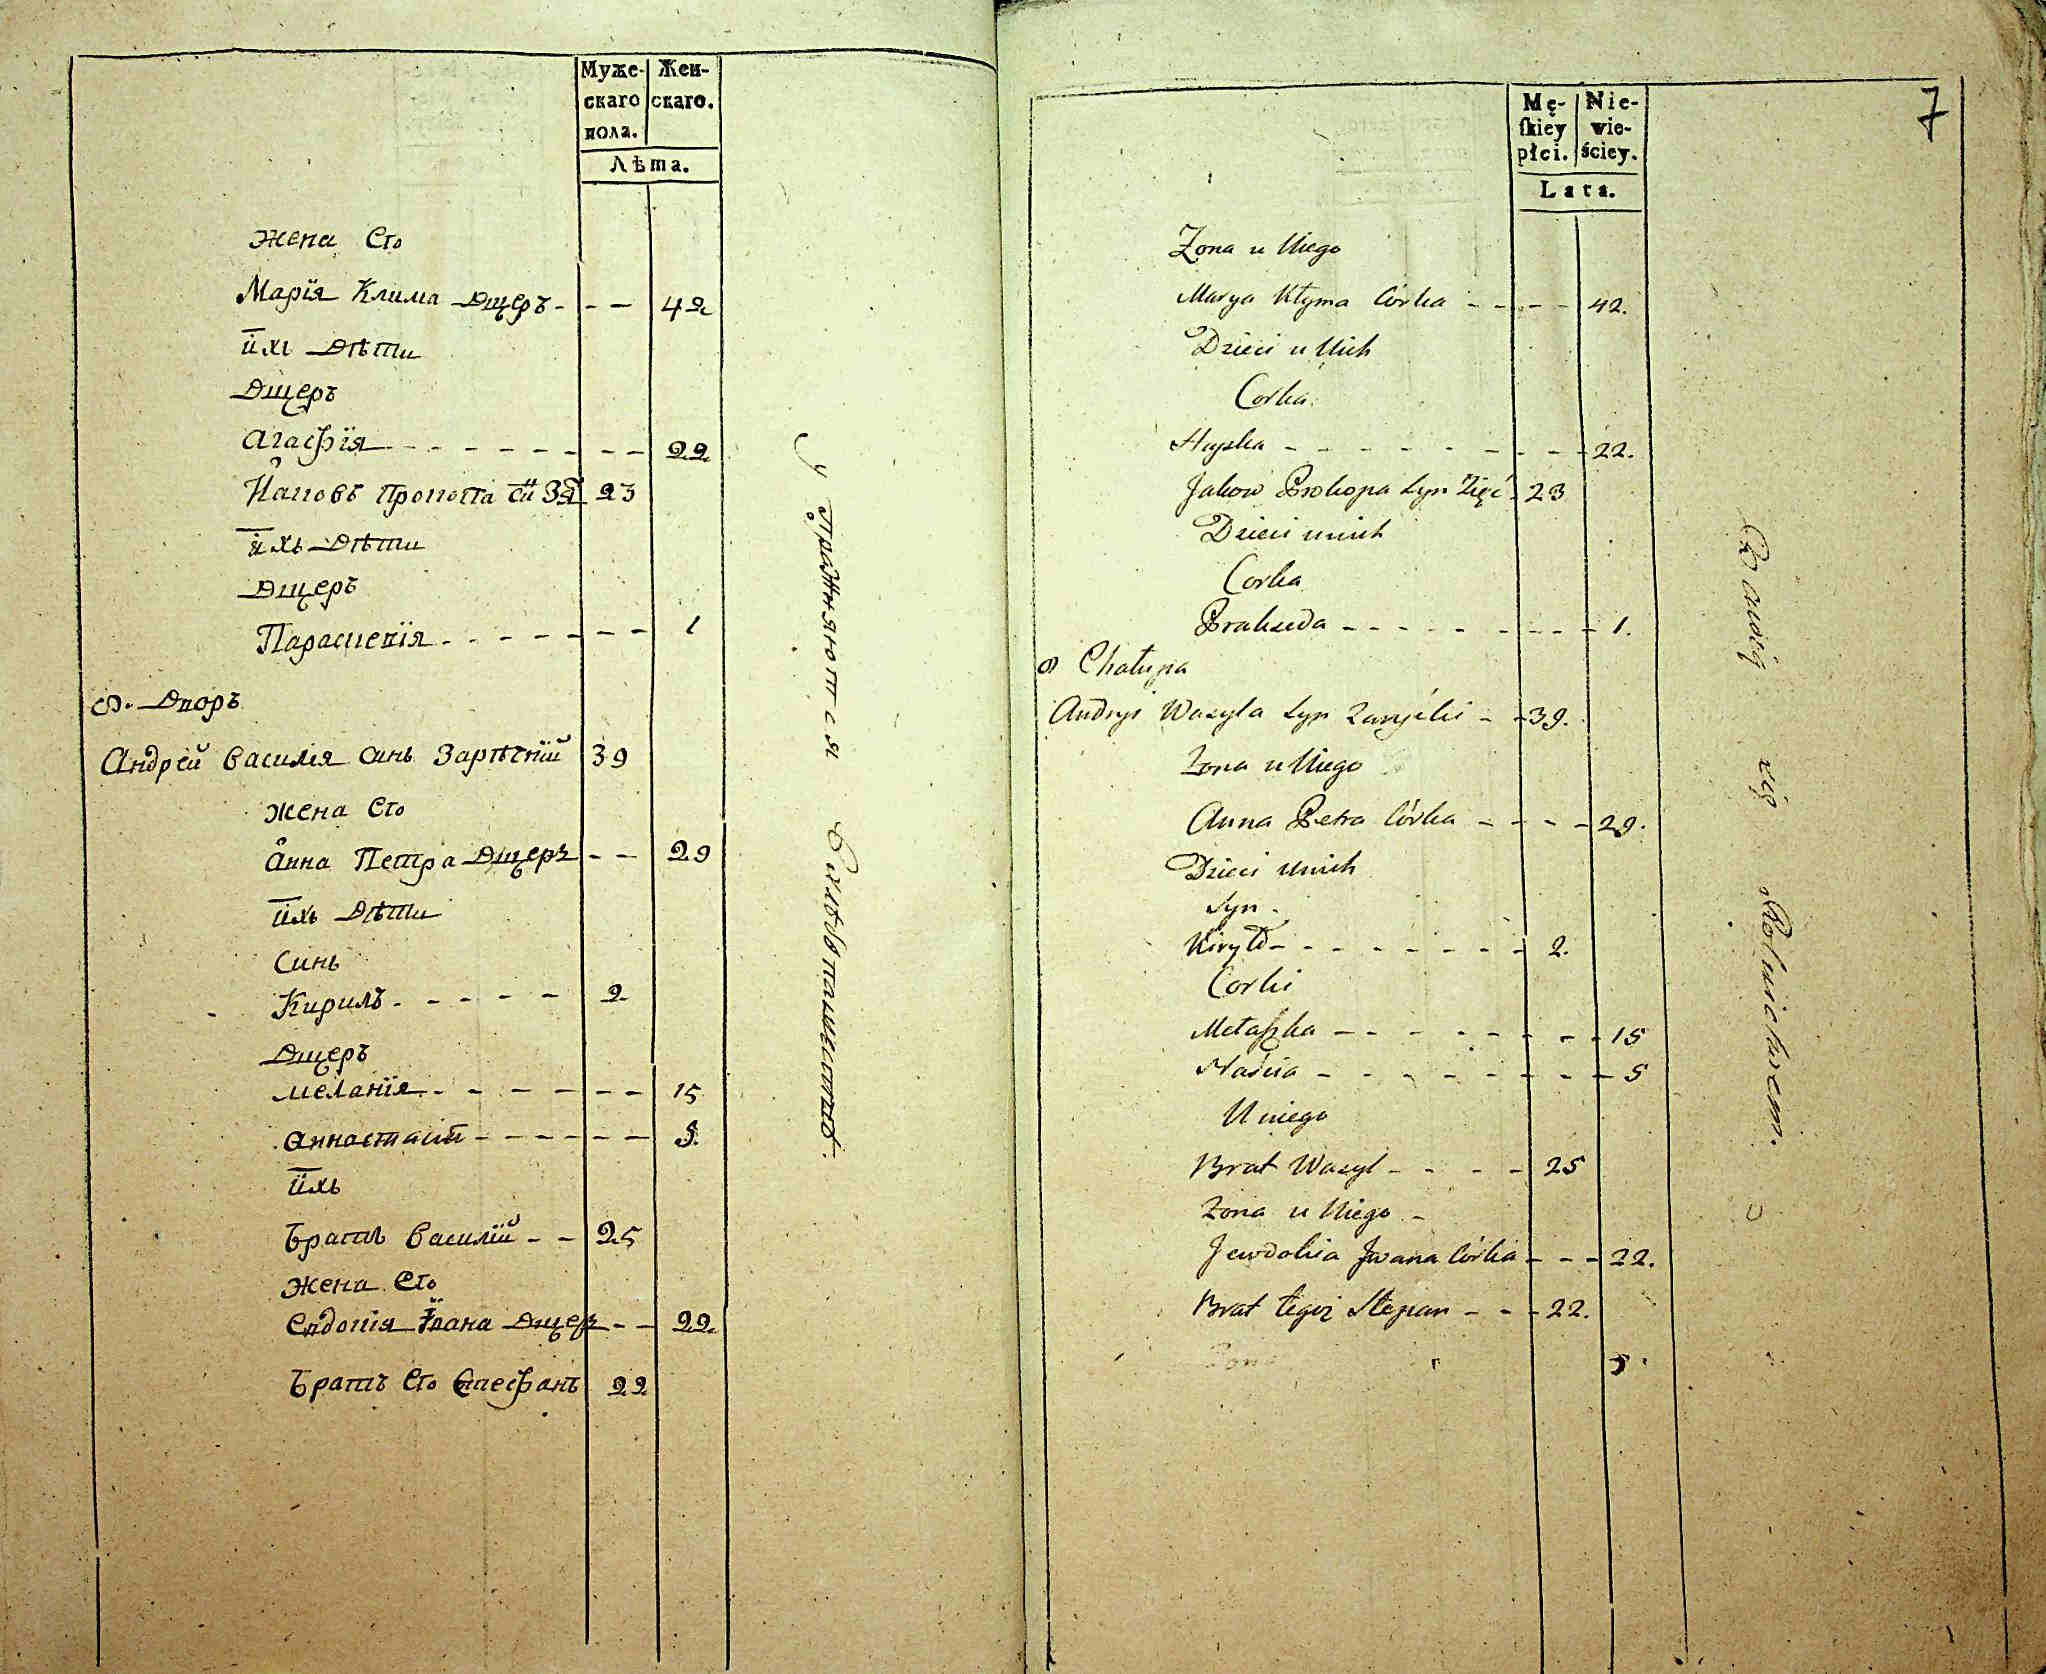 Муже-
скаго
пола.
Жен-
скаго.
Лѣта.
Жена Его
Марїя Клима Дщеръ - - - 42
ихъ Дѣти
Дщеръ
Агафїя - - - - - - - - 22
Яковъ Прокопа Зя 23
ихъ Дѣти
Дщеръ
Параскевїя - - - - - - - 1
Дворъ
Андрей Василія Синъ Зарѣcкїй 39
Жена Его
Анна Петра Дщеръ - - 29
ихъ Дѣти
Синъ
Кирилъ - - - - - 2
Дщеръ
Меланїя - - - - - - - 15
Анностасіи - - - - - - 5.
ихъ
Братъ Василїй - - 25
Жена Его
Евдокія Ївана Дщеръ - - 22.
Братъ Его Стефанъ 22
Упражняются Въ хлѣбопашествѣ.
7
Mę-
skiey
płci.
Nie-
wie-
ściey.
Lata.
Zona u Niego
Marya Kłyma Córka - - - - 42.
Dzieci u Nich
Corka
Hapka - - - - - - - - - 22.
Jakow Prokopa Syn Zięć - 23
Dzieci unich
Corka
Prakseda - - - - - - - - 1.
Chałupa
Andryi Wasyla Syn - - 39.
Zona u Niego
Anna Petra Córka - - - - 29.
Dzieci unich
Syn -
Kiryło - - - - - - - - 2.
Corki
Małaszka - - - - - - - - 15
Naścia - - - - - - - - - 5
U niego
Brat Wasyl - - - - 25
Zona u Niego -
Jewdokia Jwana Córka - - - 22.
Brat tegoż Stepan - - - 22.
się Rolnictwem.